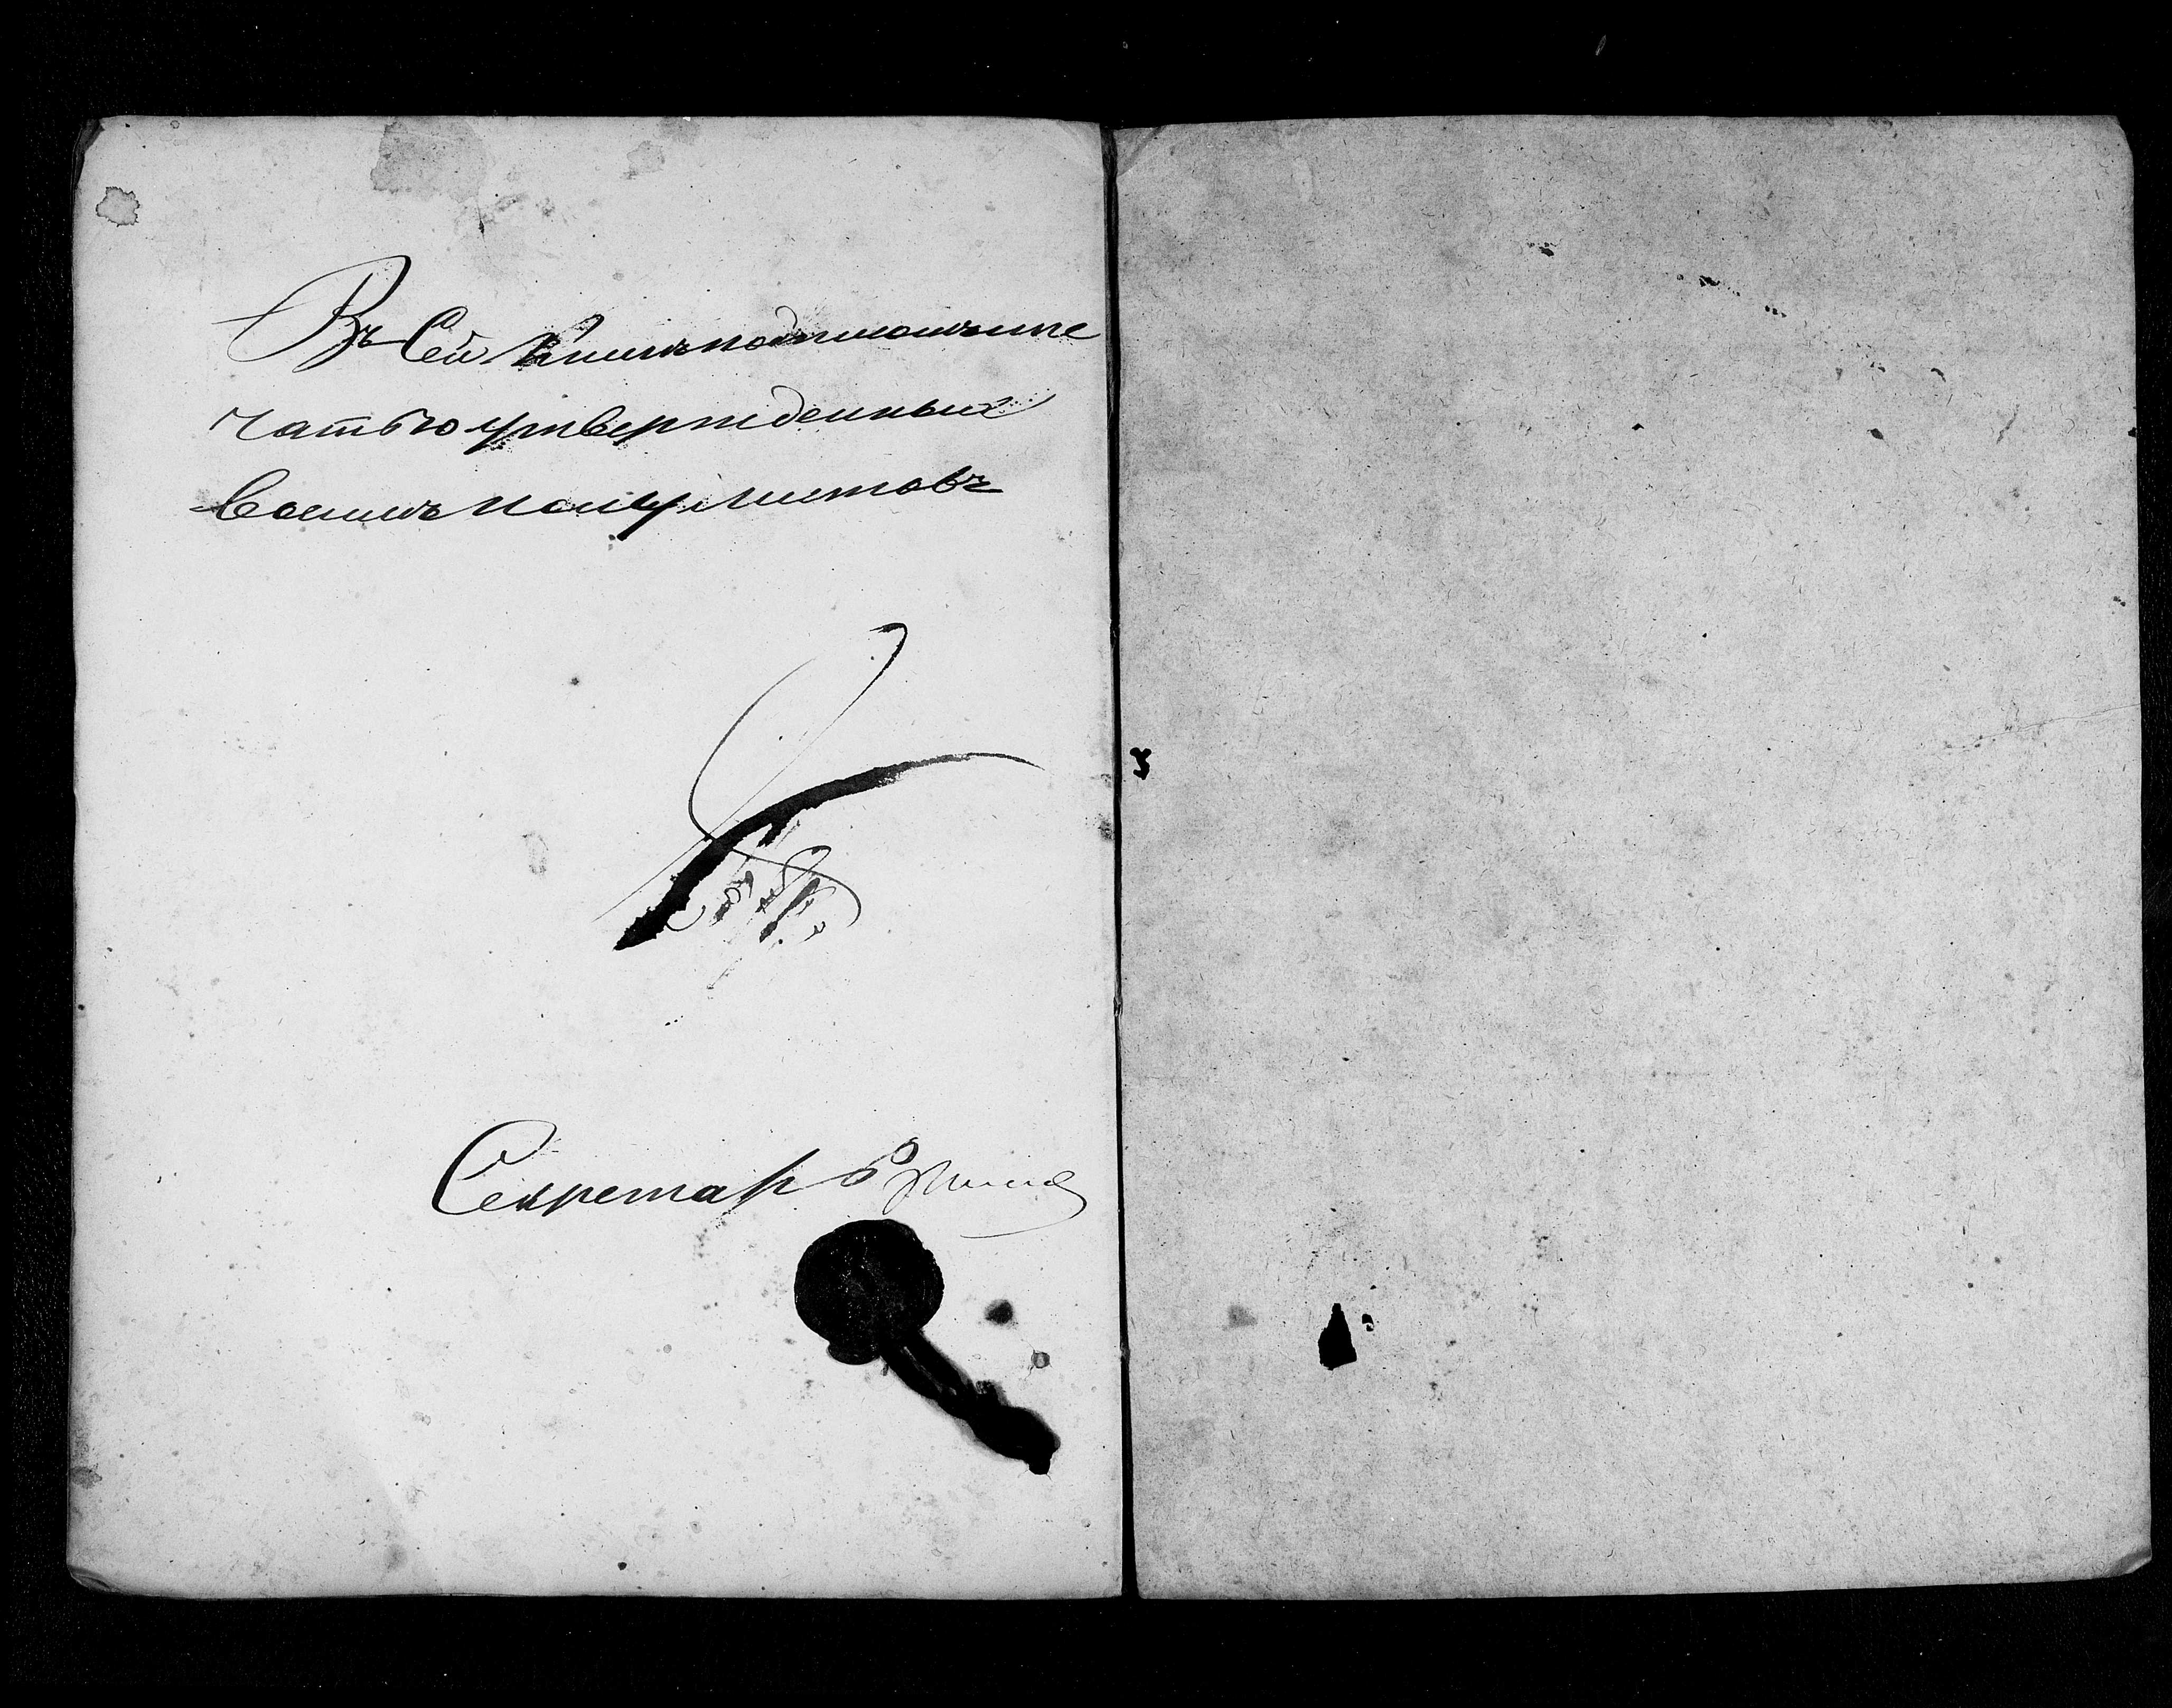 Въ Сей Книгѣ подписомъ и пе
чатью утвержденныхъ
восимь полулистовъ
Секретарь